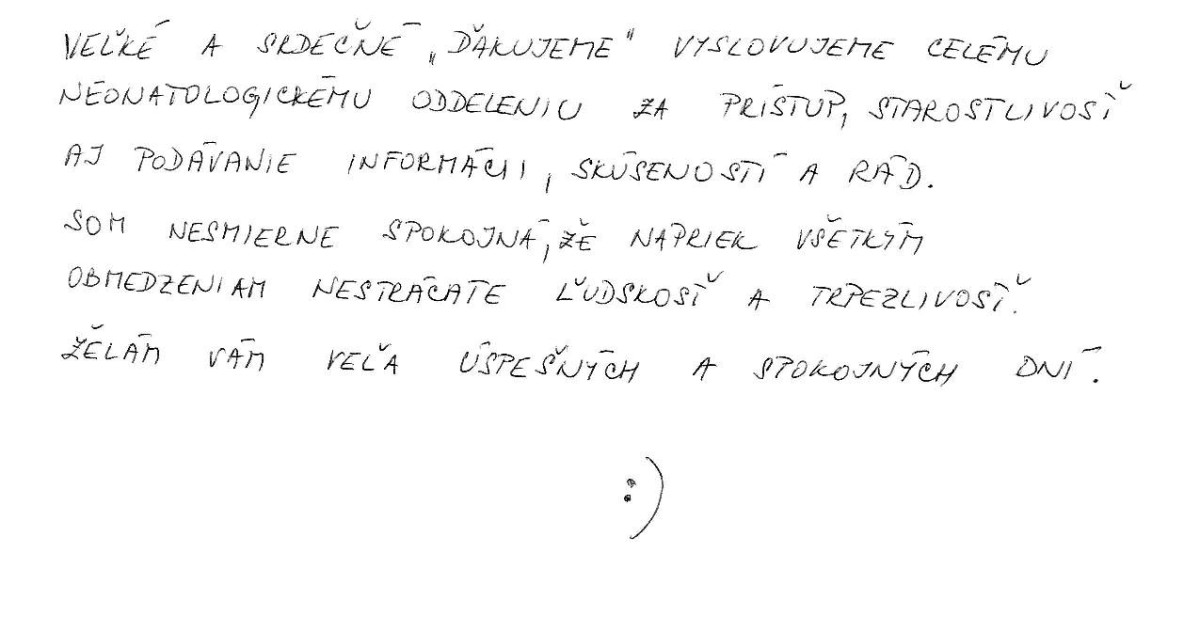 VEĽKÉ A SRDEČNÉ „ĎAKUJEME" VYSLOVUJEME CELÉMU
NEONATOLOGICKÉMU ODDELENIU ZA PRÍSTUP, STAROSTLIVOSŤ
AJ PODÁVANIE INFORMÁCII, SKÚSENOSTÍ A RÁD.
SOM NESMIERNE SPOKOJNÁ, ŽE NAPRIEK VŠETKÝM
OBMEDZENIAM NESTRÁCATE ĽUDSKOSŤ A TRPEZLIVOSŤ.
ŽELÁM VÁM VEĽA ÚSPEŠNÝCH A SPOKOJNÝCH DNÍ.
:)